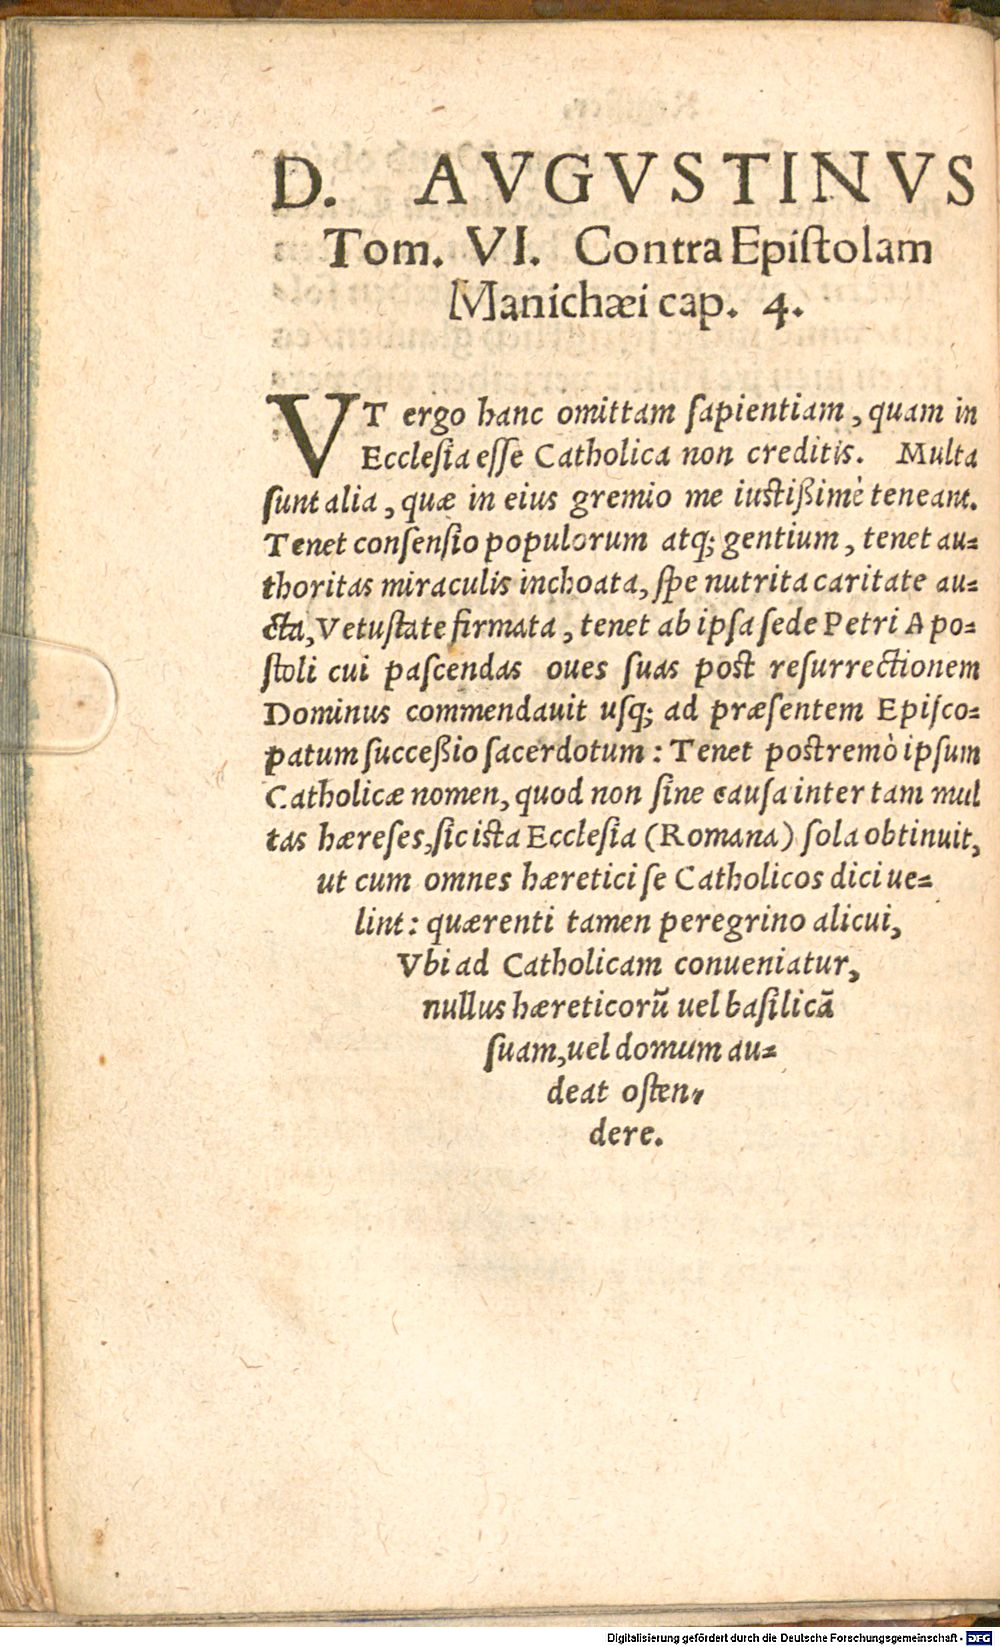 D. AVGVSTINVS
Tom. VI. Contra Epiſtolam
Manichæi cap. 4.
VT ergo hanc omittam ſapientiam, quam in
Eccleſia eſſe Catholica non creditis. Multa
ſunt alia, quæ in eius gremio me iuſtißimè teneant.
Tenet conſenſio populorum atq; gentium, tenet au=
thoritas miraculis inchoata, ſpe nutrita caritate au=
cta, Vetuſtate firmata, tenet ab ipſa ſede Petri Apo=
ſtoli cui paſcendas oues ſuas poſt reſurrectionem
Dominus commendauit uſq; ad præſentem Epiſco=
patum succeßio ſacerdotum: Tenet poſtremò ipſum
Catholicæ nomen, quod non ſine cauſa inter tam mul
tas hæreſes, ſic iſta Eccleſia (Romana) ſola obtinuit,
ut cum omnes hæretici ſe Catholicos dici ue=
lint: quærenti tamen peregrino alicui,
Vbi ad Catholicam conueniatur,
nullus hæreticorū uel baſilicā
ſuam, uel domum au=
deat oſten=
dere.
Digitalisierung gefördert durch die Deutsche Forschungsgemeinschaft - DFG